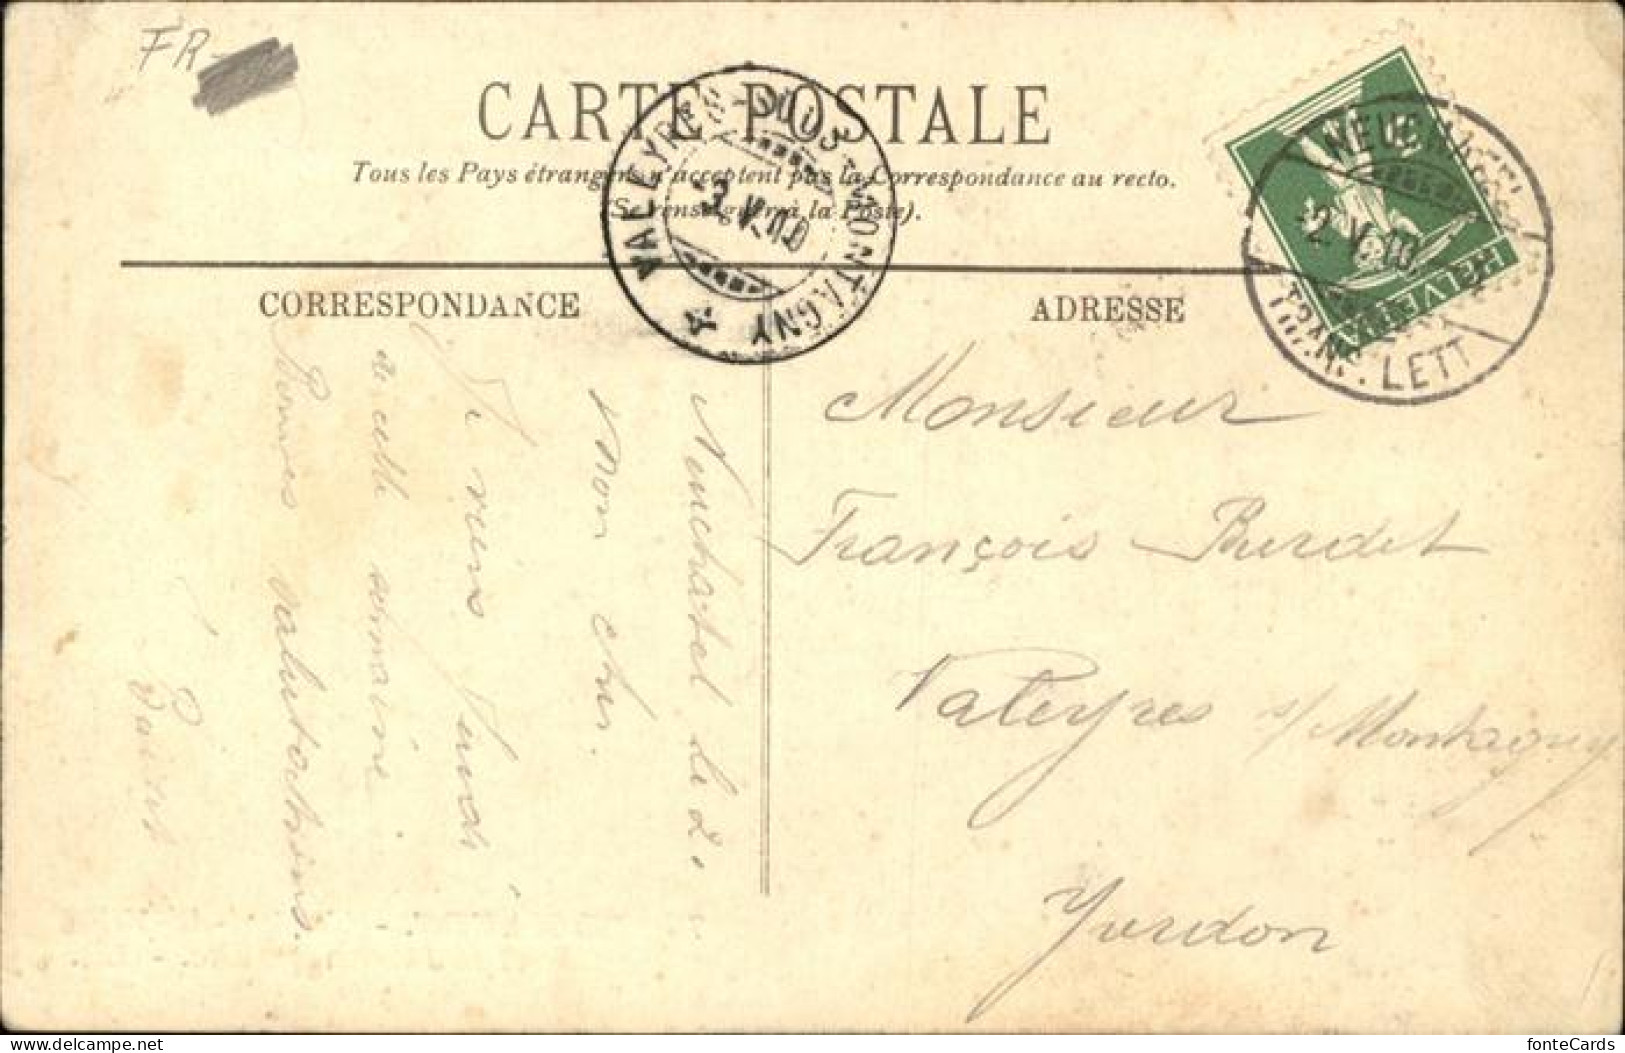 FR
CARTE POSTALE
Tous les Pays étrangers n'acceptent pas la Correspondance au recto.
(Se renseigner à la Poste).
VALLEYRES-SOUS-MONTAGNY
-3.V.10
NEUCHATEL
-2.V.10
TRANS. LETT
HELVETIA
CORRESPONDANCE
ADRESSE
Neuchatel le 2
Mon cher.
Je viens Lundi
de cette semaine
Bonnes salutations.
Monsieur
François Burdet
Valeyres s/ Montagny
Yverdon
delcampe.net
fonteCards